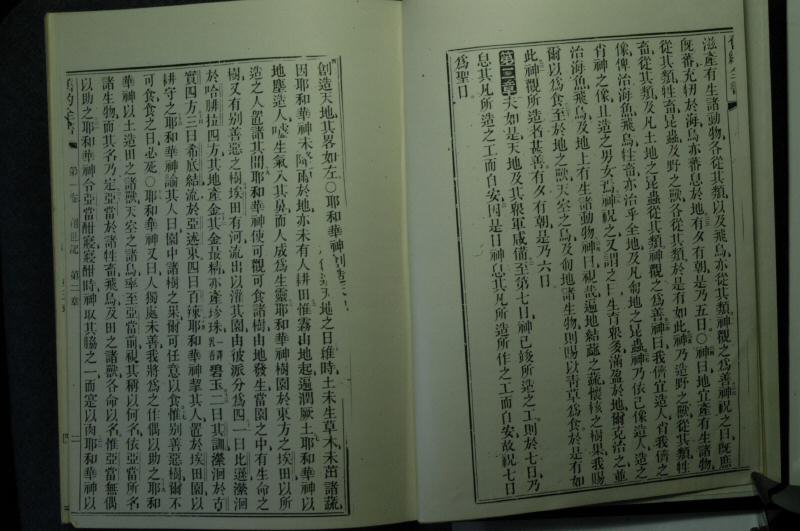 滋產有生諸動物、各從其類、以及飛鳥、亦從其類、神觀之爲善、神祝之曰、旣庶
旣蕃、充牣於海、鳥亦蕃息於地、有夕有朝、是乃五日〇神曰、地宜產有生諸物、
從其類、牲畜、昆蟲、及野之獸、各從其類、於是有如此、神乃造野之獸、從其類、牲
畜從其類、及凡土地之昆蟲從其類、神觀之爲善、神曰、我儕宜造人、肖我儕之
像、俾治海魚飛鳥、牲畜、亦治乎全地、及凡匐地之昆蟲、神乃依己像造人、造之
肖神之像、且造之男女焉、神祝之、又謂之曰、生育衆多、滿盈於地、爾克治之、並
治海魚飛鳥、及地上有生諸動神曰、視哉、遍地結蘂之蔬、懷核之樹果、我賜
爾以爲食、至於地之獸、天空之鳥、及匐地諸生物、則賜以靑草爲食、於是有如
此、神觀所造者甚善、有夕有朝、是乃六日、
第二章 夫如是、天地及其衆軍咸備、至第七日、神已竣所造之工、則於七日、乃
息其凡所造之工而自安、因是日神息其凡所造所作之工而自安、故祝七日
爲聖日、
創造天地、其畧如左〇耶和華神創造天地之日、維時土未生草、木未茁諸蔬、
因耶和華神未降雨於地、亦未有人耕田、惟霧由地起、遍潤厥土、耶和華神以
地塵造人、噓生氣入其鼻、而人成爲生靈、耶和華神樹園於東方之埃田、以所
造之人、置諸其間、耶和華神使可觀可食諸樹、由地發生、當園之中、有生命之
樹、又有別善惡之樹、埃田有河流出、以灌其園、由彼派分爲四、一曰比遜、瀠洄
於哈腓拉四方、其地產金、其金最精、亦產珍珠、碧玉、二曰其訓、瀠洄於古
實四方、三曰希底結、流於亞述東、四曰百辣、耶和華神挈其人置於埃田園、以
耕守之、耶和華神諭其人曰、園中諸樹之果、爾可任意以食、惟別善惡樹、爾不
可食、食之日必死〇耶和華神又曰、人獨處未善、我將爲之作偶以助之、耶和
華神以土造田之諸獸、天空之諸鳥、率至亞當前、視其稱以何名、依亞當所名
諸生物、而其名乃定、亞當於諸牲畜、飛鳥、及田之諸獸、各命以名、惟亞當無偶
以助之、耶和華神令亞當酣寢、寢酣時、神取其脇之一、而窒以肉、耶和華神以
第一卷 創世記 第二章 二